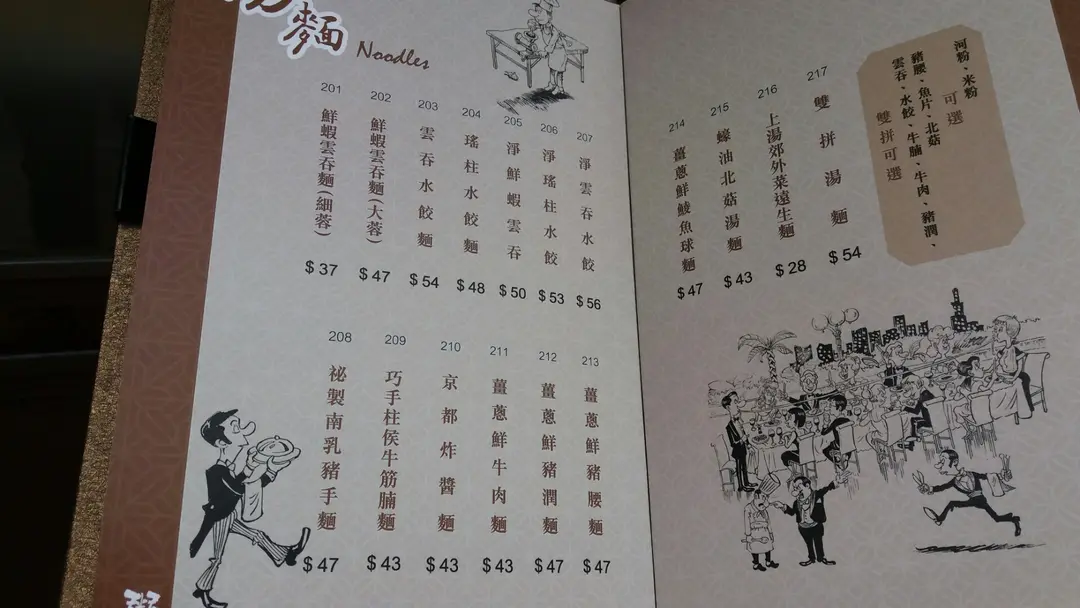 麵
Noodles
201
鮮蝦雲吞麵(細蓉)
$37
202
鮮蝦雲吞麵(大蓉)
$47
203
雲吞水餃麵
$54
204
瑤柱水餃麵
$48
205
淨鮮蝦雲吞
$50
206
淨瑤柱水餃
$53
207
淨雲吞水餃
$56
208
祕製南乳豬手麵
$47
209
巧手柱侯牛筋腩麵
$43
210
京都炸醬麵
$43
211
薑蔥鮮牛肉麵
$43
212
薑蔥鮮豬潤麵
$47
213
薑蔥鮮豬腰麵
$47
214
薑蔥鮮鯪魚球麵
$47
215
蠔油北菇湯麵
$43
216
上湯郊外菜遠生麵
$28
217
雙拼湯麵
$54
河粉、米粉
可選
豬腰、魚片、北菇
雲吞、水餃、牛腩、牛肉、豬潤、
雙拼可選
粥